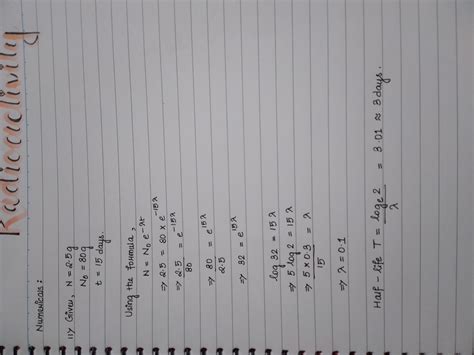 Radioactivity
Numericals:
1) Given, N = 2.5g
N₀ = 80g
t = 15 days.
Using the formula,
N = N₀ e^-λt
⇒ 2.5 = 80 × e^-15λ
⇒ 2.5/80 = e^-15λ
⇒ 80/2.5 = e^15λ
⇒ 32 = e^15λ
log 32 = 15λ
⇒ 5 log 2 = 15λ
⇒ 5 × 0.3/15 = λ
⇒ λ = 0.1
Half life T = logₑ2/λ = 3.01 ≈ 3 days.